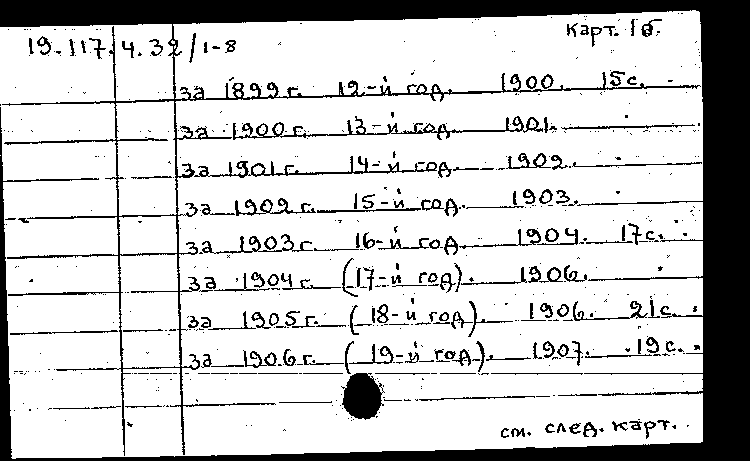 Карт. 1б.
19.117.4.32/1-8
за 1899 г. 12-й год. 1900. 15 с.
за 1900 г. 13-й год. 1901.
за 1901 г. 14-й год. 1902.
за 1902 г. 15-й год. 1903.
за 1903 г. 16-й год. 1904. 17 с.
за 1904 г. (17-й год). 1906.
за 1905 г. (18-й год). 1906. 21 с.
за 1906 г. (19-й год). 1907. 19 с.
см. след. карт.